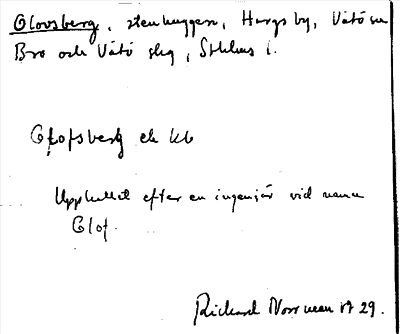 Olovsberg, stenhuggeri, Harg by, Vätö sn
Bro och Vätö skg, Sthlms l.
Olofsberg
Uppkallat efter en ingenjör vid namn
Olof.
Rickard Norrman 29.